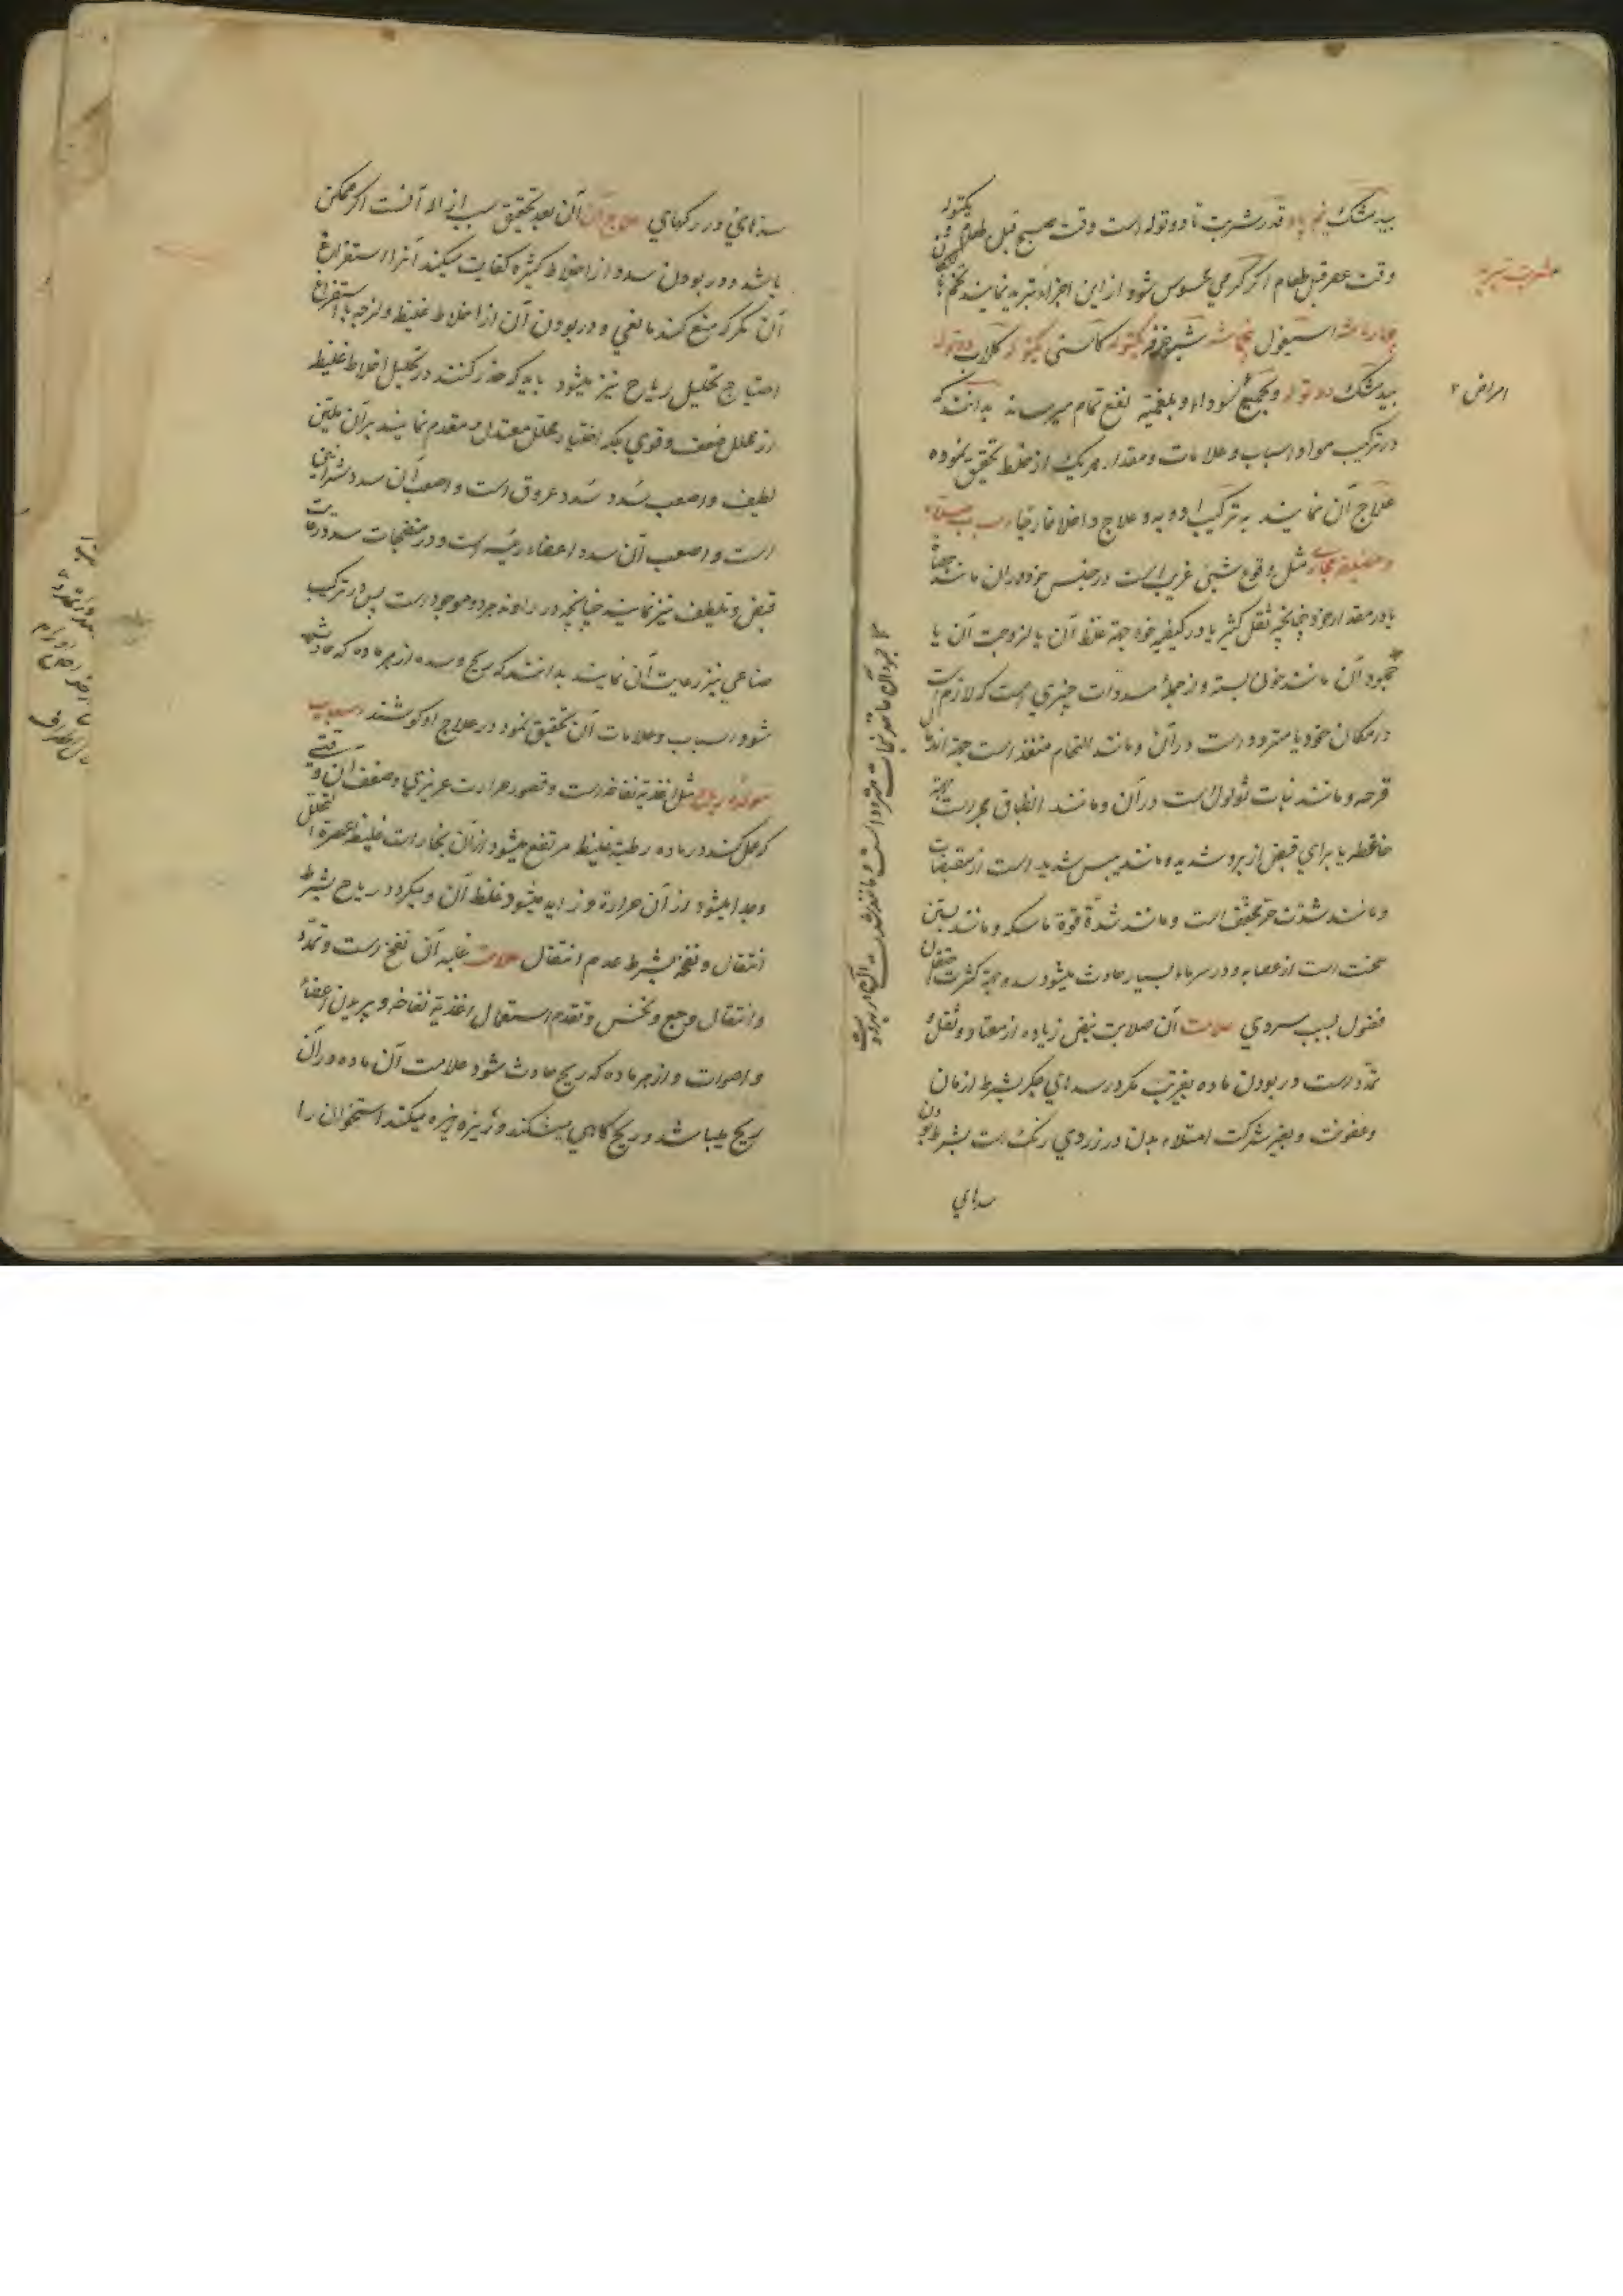 بیدمشک نیم پاو قدر شربت تا دو توله است وقت صبح قبل طعام یکتوله
وقت عصر قبل طعام اکر کرمی محسوس شود از این اجزاء تبرید نمایند تخم
شربت تبرید
چهار ماشه اسبغول پنجماشه شیره خرفه یکتوله کاسنی یکتوله کلاب دو توله
بیدمشک دو توله و بجمیع سوداء و بلغمیه نفع تمام میرساند بدانند که
امراض ۲
در ترکیب مواد و اسباب و علامات و مقدار هر یک از خلط تحقیق نموده
علاج آن نمایند به ترکیب ادویه و علاج داخلا خارجا سبب
و مضیقه مجاری مثل وقوع شیئی غریب است در جنس خود در آن مانند
یا در مقدار خود چنانچه ثقل کثیر یا در کیفیه خود جهة غلظ آن یا لزوجت آن یا
جمود آن مانند خون بسته و از جملهٔ مسدوات چیزی است که لازم است
در مکان خود یا متردد است در آن و مانند التحام منفذ است جهة اندمال
قرحه و مانند نبات ثولول است در آن و مانند انطباق مجری است
ضاغطه یا برای قبض از برد شدید و مانند یبس شدید است از مقبضات
و مانند شدت حر مجفف است و مانند شدّة قوة ماسکه و مانند بستن
سخت است از عصابه و در سرما بسیار حادث میشود سده جهة کثرت
فضول بسبب سردی علامت آن صلابت نبض زیاده از معتاد و ثقل و
تمدد است در بودن ماده بغیر تب مکر در سدهای جکر بشرط ازمان
و عفونت و بغیر شرکت امتلاء بدن در زردی رنک است بشرط بودن
سدهای
جمود آن مانند نبات متردد است و مانند شدت
سدهای در رکهای علاج آن آن بعد تحقیق سبب ازاله آنست اکر ممکن
باشد و در بودن سدد از اخلاط کثیره کفایت میکند آنرا استفراغ
آن مکر که منع کند مانعی و در بودن آن از اخلاط غلیظ و لزجه با استفراغ
احتیاج تحلیل ریاح نیز میشود باید که حذر کنند در تحلیل اخلاط غلیظه
از محلل ضعف و قوی بلکه اختیار محلل معتدل و مقدم نمایند بر آن ملین
لطیف و اصعب سُدد سُدد عروق است و اصعب آن سدد شرائین
است و اصعب آن سدد اعضاء رئیسه است و در مفتحات سدد رعایت
قبض و تلطیف نیز نمایند چنانچه در راوند هر دو موجود است پس در ترکیب
صناعی نیز رعایت آن نمایند بدانند که ریح و سده از هر ماده که حادث
شود اسباب و علامات آن تحقیق نمود در علاج او کوشند سبب
مولده ریاح مثل اغذیه نفاخه است و قصور حرارت غریزی و ضعف آن وقتی
که عمل کند در ماده رطبه غلیظ مرتفع میشود از آن بخارات غلیظ
و جدا میشود از آن حرارة و زاید میشود غلظ آن و میکردد ریاح بشرط
انتقال و نفخه بشرط عدم انتقال علامت غلبه آن نفخ است و تمدّد
و انتقال وجع و نخس و تقدم استعمال اغذیهٔ نفاخه و پریدن اعضاء
و اصوات و از هر ماده که ریح حادث شود علامت آن ماده در آن
ریح میباشد و ریح کاهی میشکند و ریزه ریزه میکند استخوان را